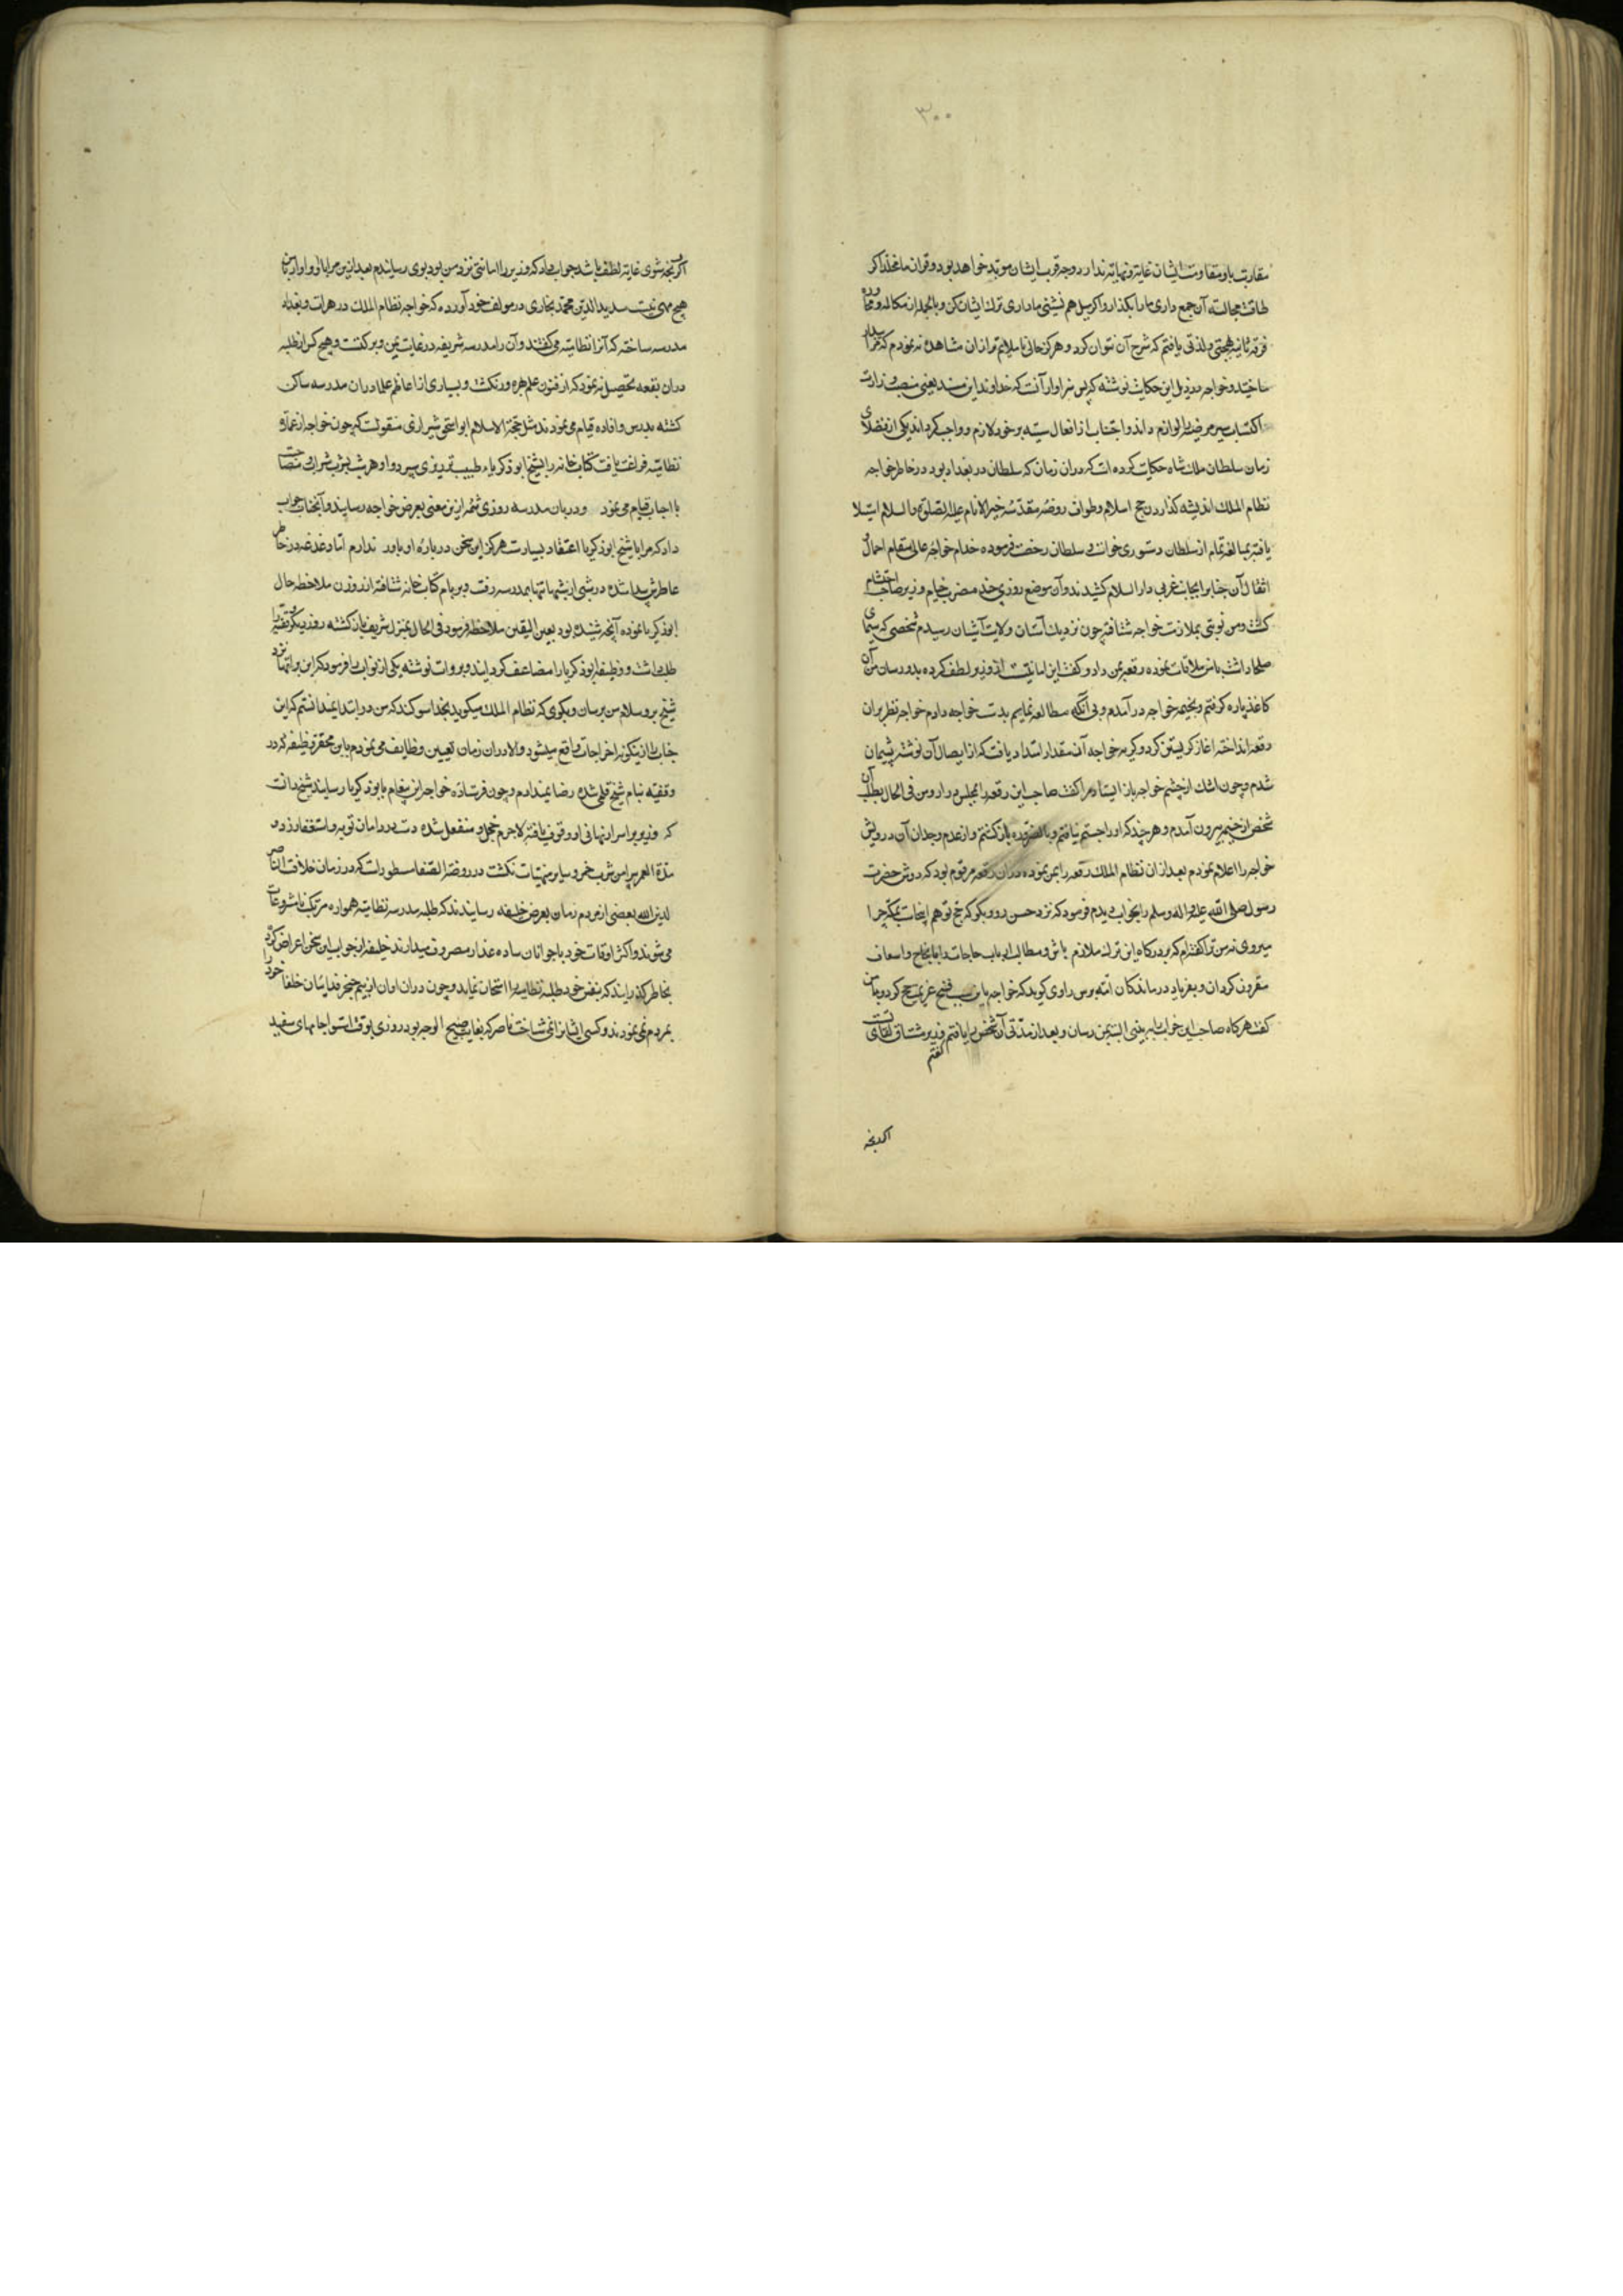 ۳۰۰
مقارب باو مقاومت ایشان غایة و نهایة ندارد و جه قرب ایشان موبد خواهد بود و قران ما مخلد اکر
طاقت مجالسته آن جمع داری ما را بکذار و اکر میل هم نشینی ما داری ترک ایشان کن و بالجمله از مکالمه و محاوره
فرقه ثانیه بهجتی و لذتی یافتم که شرح آن نتوان کرد و هرکز حالی ناملایم تر ازان مشاهده نه نمودم که مرا بیدار
ساختند و خواجه در ذیل این حکایت نوشته که پس سزاوار آنست که خداوند این مسند یعنی منصب وزارت
اکتساب سیر مرضیه را لوازم داند و اجتناب از افعال سیئه بر خود لازم و واجب کرداند یکی از فضلای
زمان سلطان ملک شاه حکایت کرده است که در آن زمان که سلطان در بغداد بود در خاطر خواجه
نظام الملک اندیشه کذاردن حج اسلام و طواف روضه مقدسه خیر الانام علیه الصلوة و السلام استیلا
یافته بمبالغه تمام از سلطان دستوری خواست و سلطان رخصت فرموده خدام خواجه عالی مقام احمال و
اثقال آن جناب را بجانب غربی دار السلام کشیدند و آن موضع روزی چند مضرب خیام وزیر صاحب احتشام
کشت و من نوبتی بملازمت خواجه شتافته چون نزدیک آستان ولایت آشیان رسیدم شخصی که سیمای
صلحا داشت با من ملاقات نموده رقعه بمن داد و کفت این امانتیست از وزیر لطف کرده بدو رسان من آن
کاغذ پاره کرفتم و بخیمه خواجه در آمدم و بی آنکه مطالعه نمایم بدست خواجه دادم خواجه نظر بران
رقعه انداخته اغاز کریستن کرد و کریه خواجه آن مقدار امتداد یافت که از ایصال آن نوشته پشیمان
شدم و چون اشک از چشم خواجه باز ایستاد مرا کفت صاحب این رقعه را بمجلس در ار و من فی الحال بطلب آن
شخص از خیمه بیرون آمدم و هر چند که او را جستم نیافتم و بالضروره باز کشتم و از عدم وجدان آن درویش
خواجه را اعلام نمودم بعد ازان نظام الملک رقعه را بمن نموده دران رقعه مرقوم بود که دوش حضرت
رسول صلی الله علیه و اله وسلم را بخواب دیدم فرمود که نزد حسن رو و بکو که حج تو هم اینجاست بمکه چرا
میروی نه من ترا کفته ام که بدرکاه این ترک ملازم باش و مطالب ارباب حاجات را بانجاح و اسعاف
مقرون کردان و بفریاد درماندکان امت برس راوی کوید که خواجه باین سبب فسخ عزیمت حج کرد و با من
کفت هرکاه صاحب این خواب را به بینی البته بمن رسان و بعد از مدتی آن شخص را یافتم کفتم وزیر مشتاق لقای تست
اکر بنجه
اکر بنجه شوی غایة لطف باشد جواب داد که وزیر را امانتی نزد من بود بوی رسانیدم بعد ازین مرا با او و او را با من
هیچ مهمی نیست سدید الدین محمد بخاری در مولف خود آورده که خواجه نظام الملک در هرات و بغداد
مدرسه ساخته که آنرا نظامیه می کفتند و آن را مدرسه شریفه در غایت یمن و برکتست و هیچ کس از طلبه
دران بقعه تحصیل نه نمود که از فنون علم بهره ور نکشت و بسیاری از اعاظم علما دران مدرسه ساکن
کشته بدرس و افاده قیام می نمودند مثل حجة الاسلام ابو اسحق شیرازی منقولست که چون خواجه از عمارت
نظامیه فراغت یافت کتاب خانه را بشیخ ابو ذکریاء طبیب تبریزی سپرد و او هر شب بشرب شراب و مصاحبت
با احباب قیام می نمود و دربان مدرسه روزی شمه ازین معنی بعرض خواجه رسانید و آنجناب جواب
داد که مرا با شیخ ابو ذکریا اعتقاد بسیارست هرکز این سخن درباره او باور ندارم اما دغدغه در خاطر
عاطرش پیدا شده در شبی از شبها تنها بمدرسه رفت و بر بام کتاب خانه شتافته از روزن ملاحظه حال
ابو ذکریا نموده آنچه شنیده بود بعین الیقین ملاحظه فرمود فی الحال بمنزل شریف باز کشته روز دیکر
طلب داشت و وظیفه ابو ذکریا را مضاعف کردانید و بروات نوشته یکی از نواب را فرمود که این براتها نزد
شیخ برو سلام من برسان و بکوی که نظام الملک میکوید بخدا سوکند که من در ابتدا نمیدانستم که این
جناب را ازینکونه اخراجات واقع میشود و الا دران زمان تعیین وظایف می نمودم باین محقر وظیفه که در
وقفیه بنام شیخ قلمی شده رضا نمیدادم و چون فرستاده خواجه این پیغام بابو ذکریا رسانید شیخ دانست
که وزیر بر اسرار نهانی او وقوف یافته لاجرم خجل و منفعل شده دست در دامان توبه و استغفار زد و
مدة العمر پیرامن شرب خمر و سایر منهیات نکشت در روضة الصفا مسطورست که در زمان خلافت الناصر
لدین الله بعضی از مردم زمان بعرض خلیفه رسانیدند که طلبه مدرسه نظامیه همواره مرتکب نامشروعات
می شوند و اکثر اوقات خود با جوانان ساده عذار مصروف میدارند خلیفه از جواب این سخن اعراض کرده
بخاطر کذرانید که بنفس خود طلبه نظامیه را امتحان نماید و چون دران اوان از بیم خنجر فدائیان خلفا خود را
بمردم نمی نمودند و کسی ایشانرا نمی شناخت ناصر که بغایت صبیح الوجه بود روزی بوقت استوا جامهای سفید